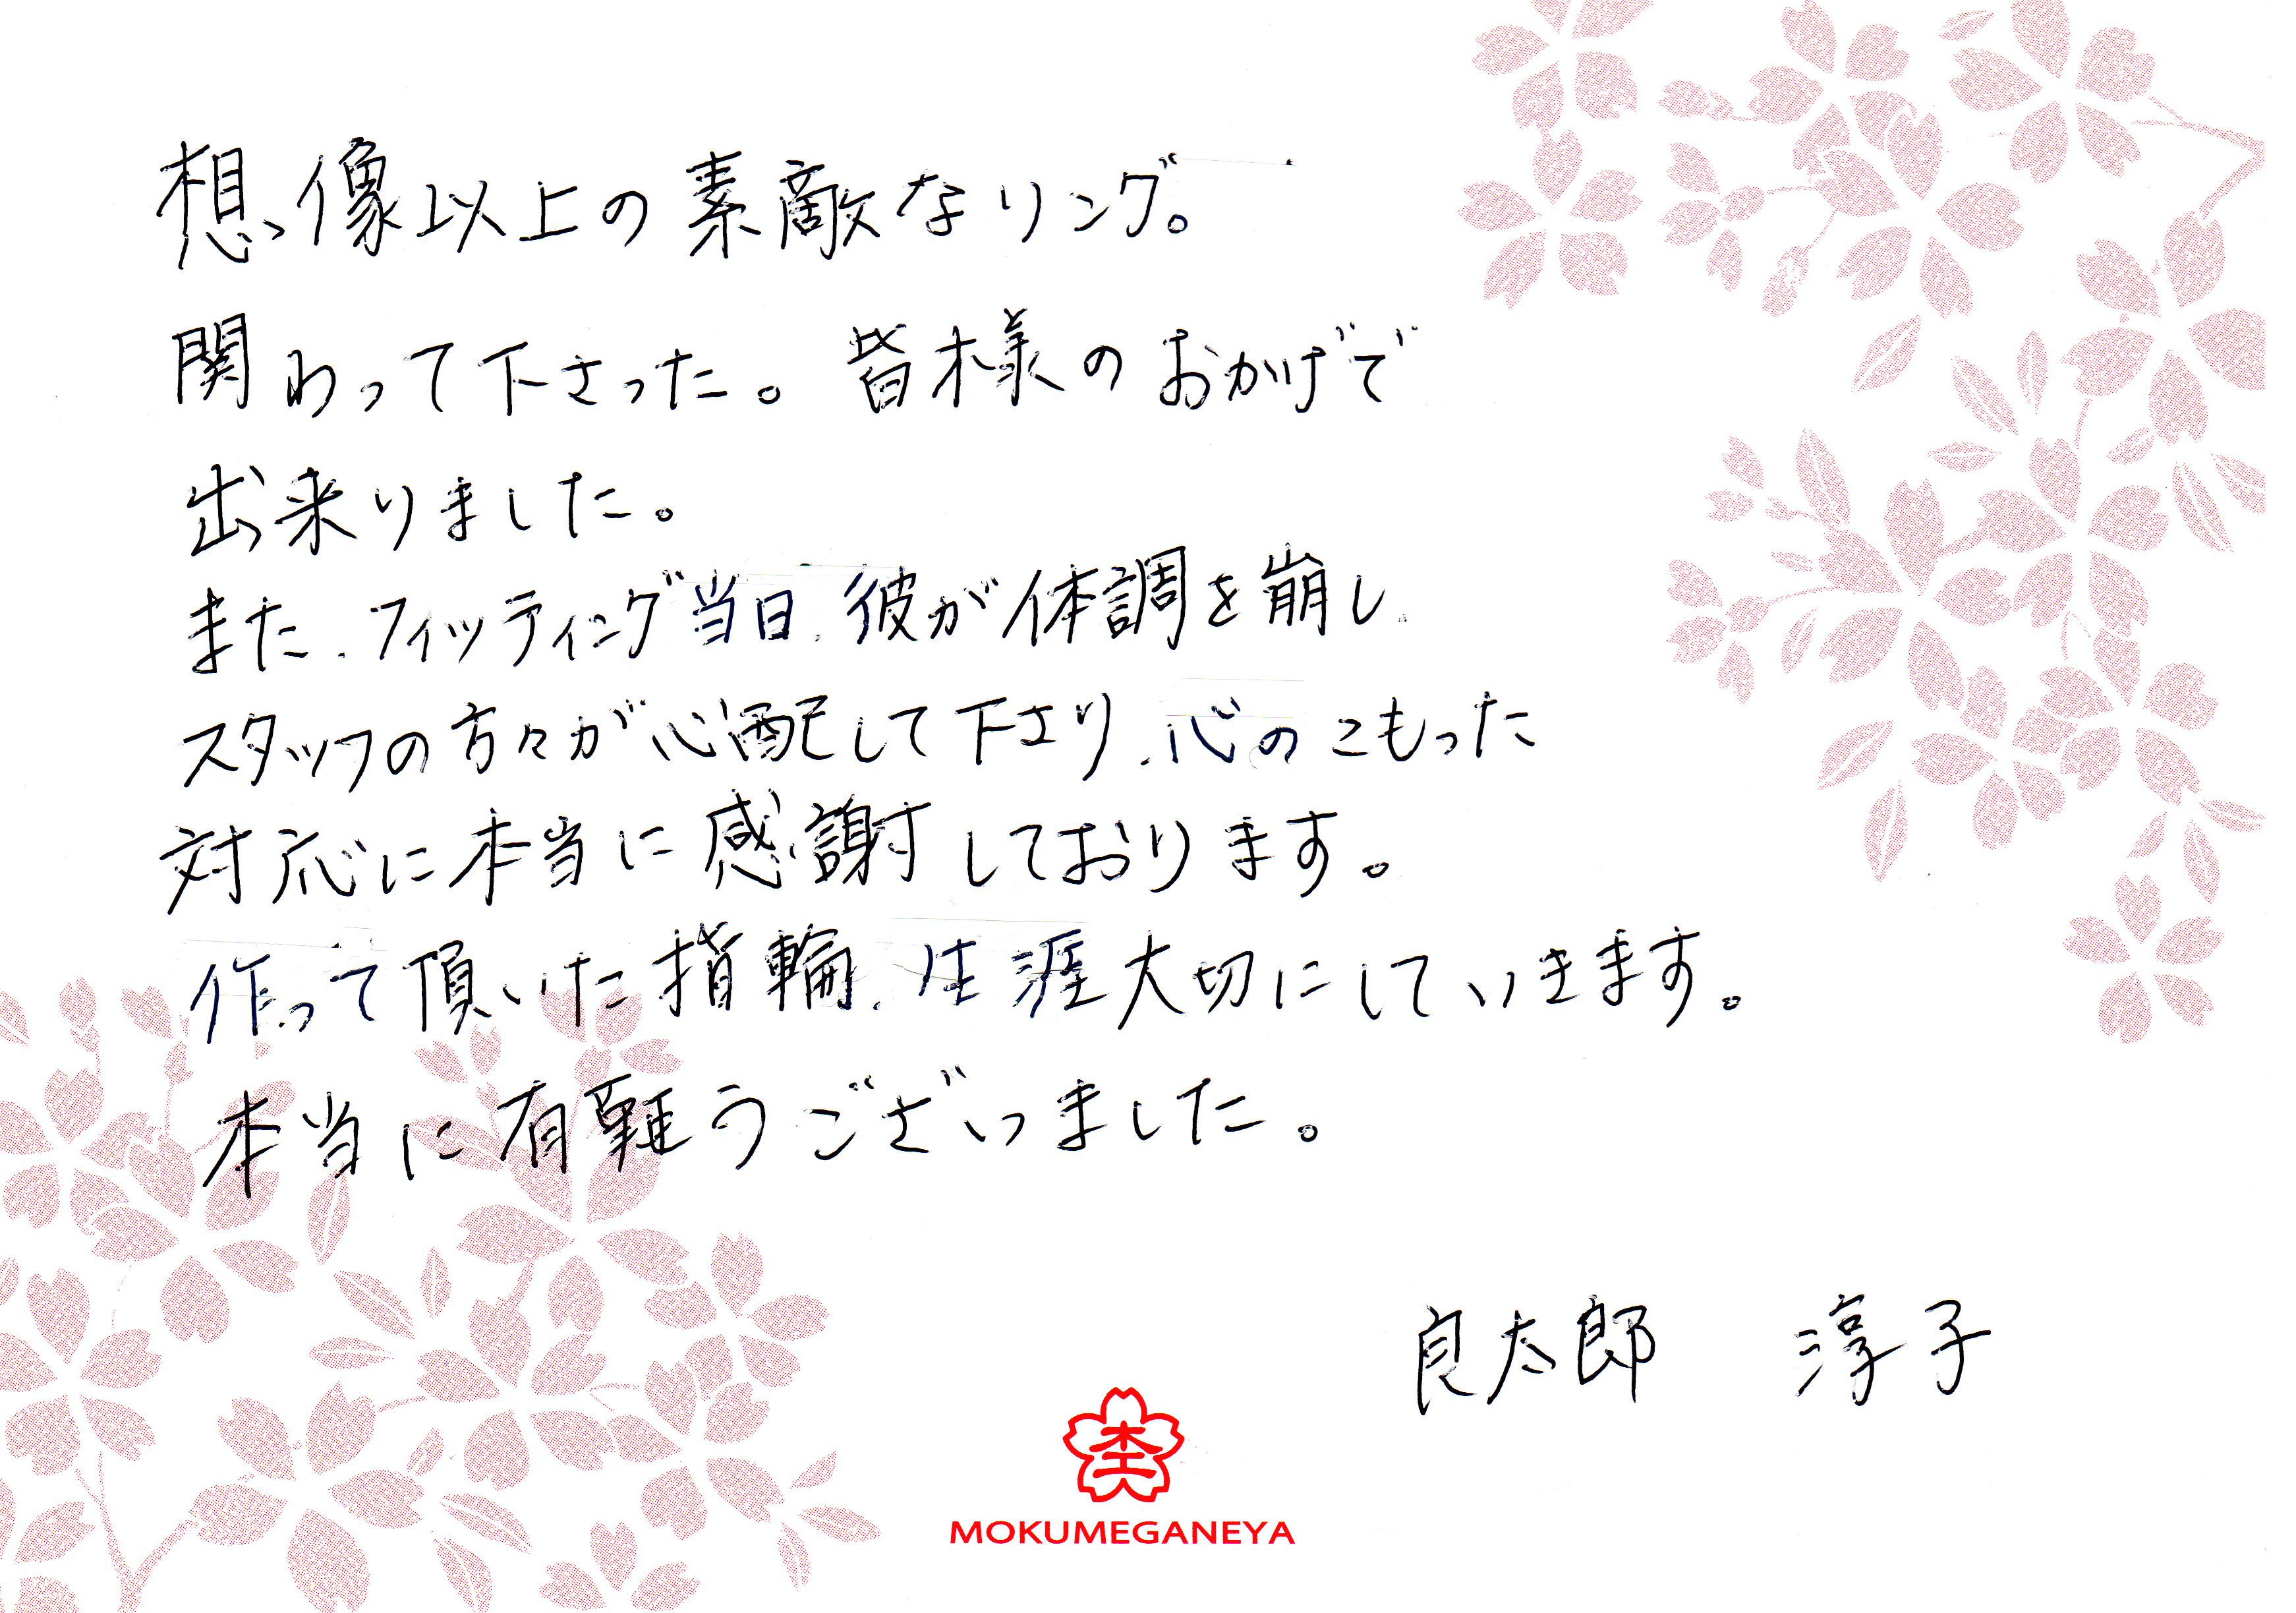 想像以上の素敵なリング。
関わって下さった。皆様のおかげで
出来りました。
また、フィッティング当日、彼が体調を崩し、
スタッフの方々が心配して下さり、心のこもった
対応に本当に感謝しております。
作って頂いた指輪、生涯大切にしていきます。
本当に有難うございました。
良太郎 淳子
杢
MOKUMEGANEYA